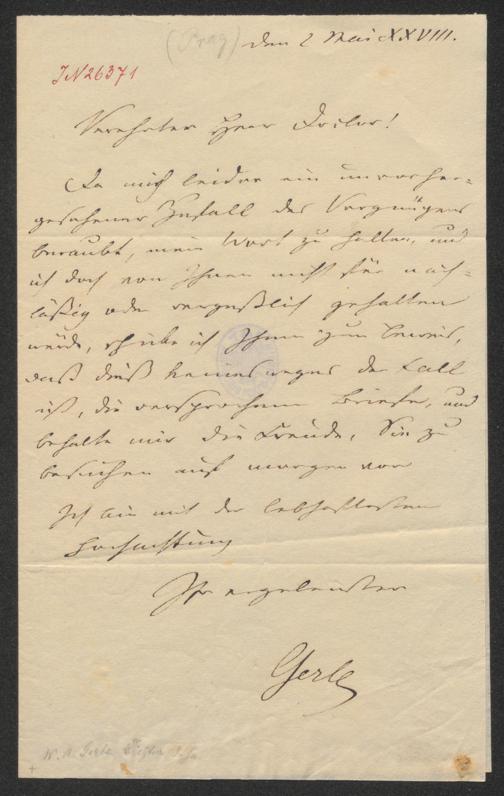 (Prag) den 2 Mai XXVIII.
IN 26371
Verehrter Herr Doctor!
Da mich leider ein unvorher-
gesehener Zufall des Vergnügens
beraubt, mein Wort zu halten, und
ich doch von Ihnen nicht für nach-
läßig oder vergeßlich gehalten
würde, schicke ich Ihnen zum Beweis,
daß dieß keineswegs der Fall
ist, die versprochenen Briefe, und
behalte mir die Freude, Sie zu
besuchen auf morgen vor
Ich bin mit der lebhaftesten
Hochachtung
Ihr ergebenster
Gerle
W. A. Gerle